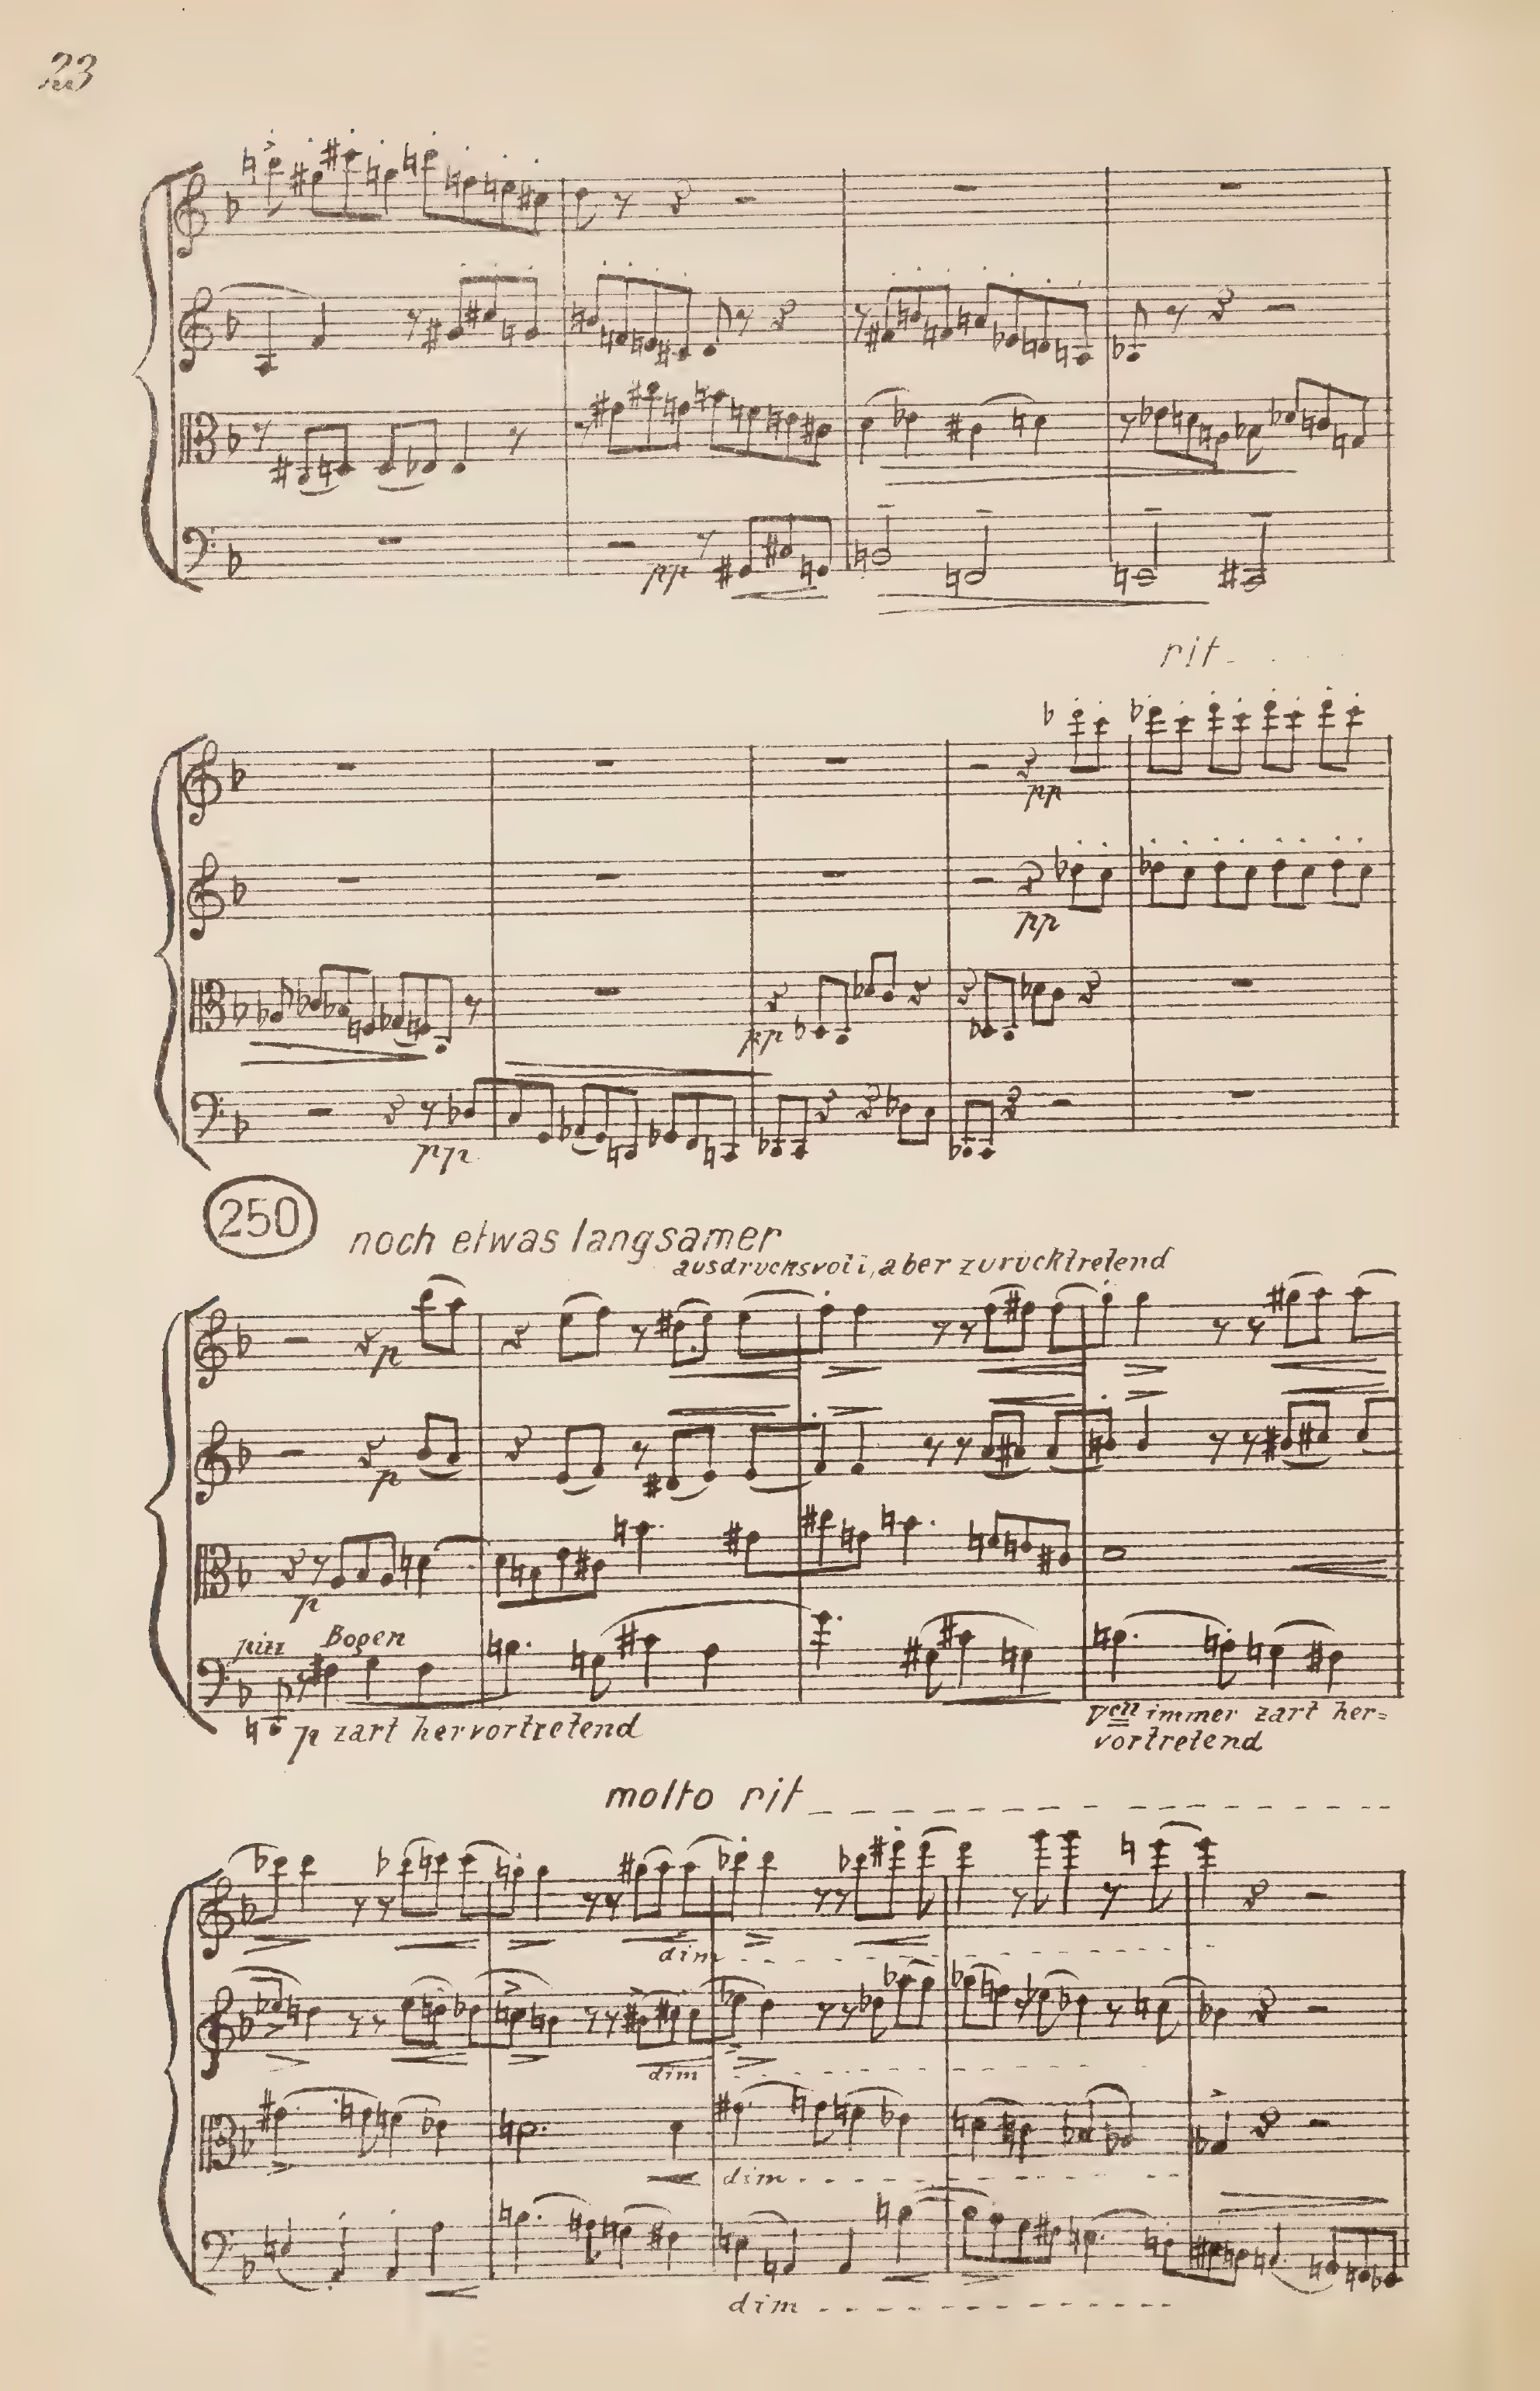 23
pp
rit
pp
pp
pp
pp
250
noch etwas langsamer
ausdrucksvoll, aber zurücktretend
p
p
p
pizz Bogen
p zart hervortretend
Vcll immer zart her=
vortretend
molto rit
dim
dim
dim
dim